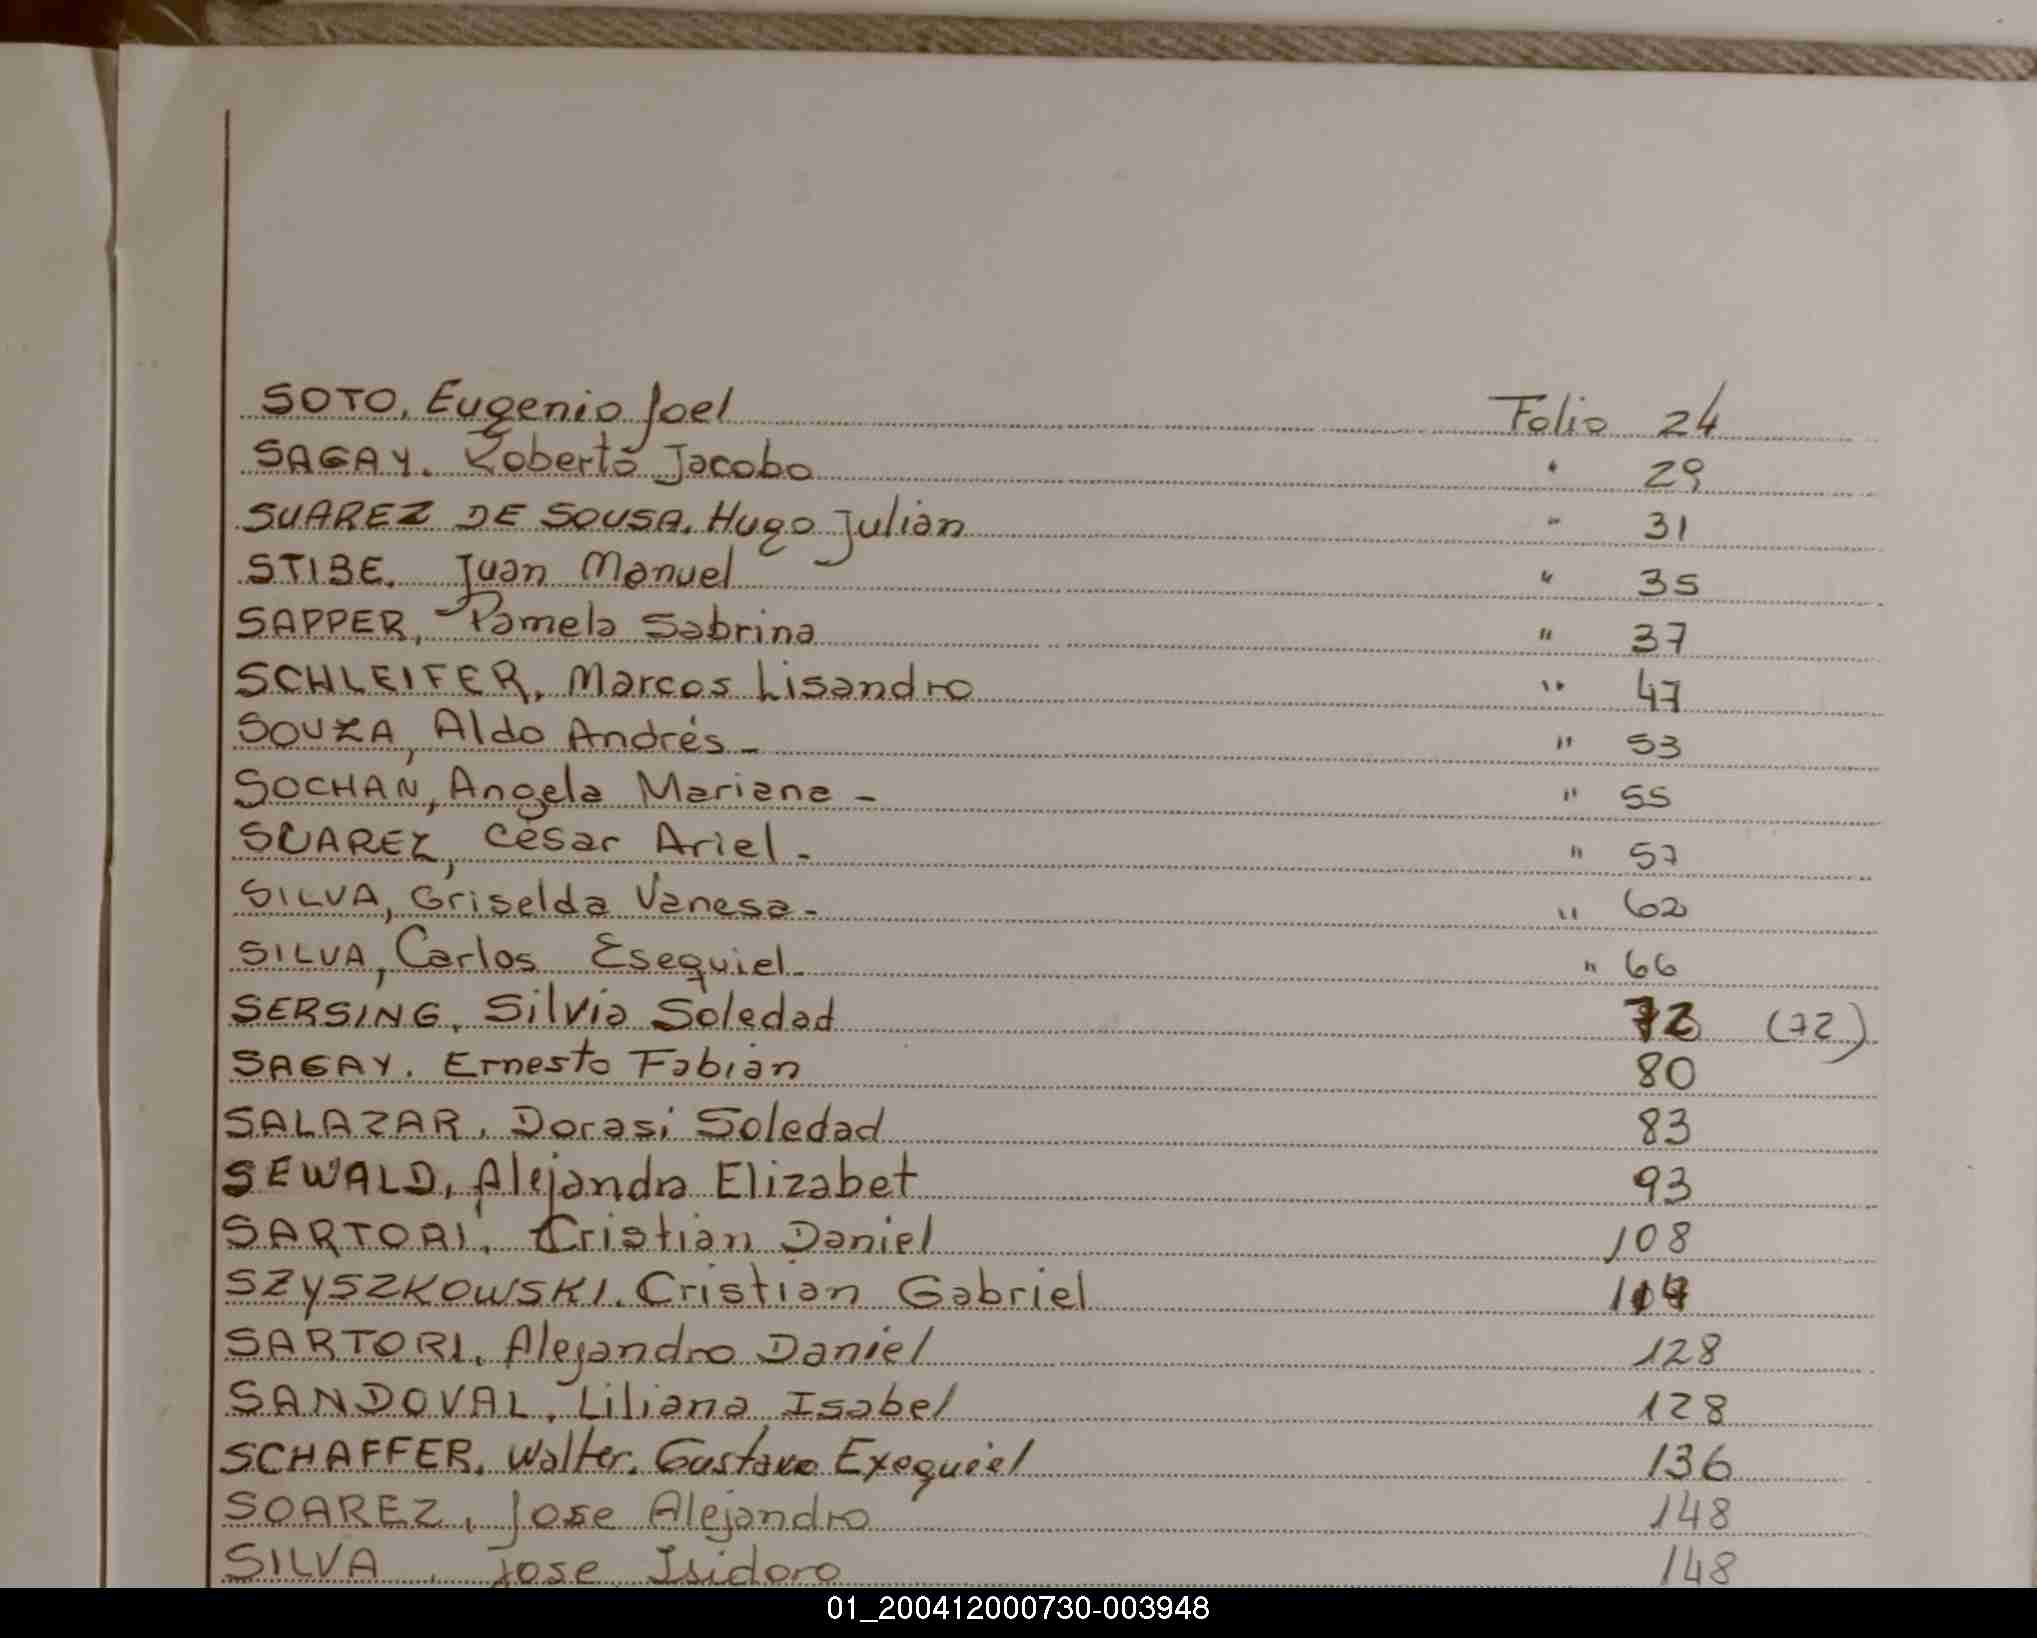 SOTO, Eugenio Joel Folio 24
SAGAY. Roberto Jacobo " 29
SUAREZ DE SOUSA. Hugo Julián " 31
STIBE. Juan Manuel " 35
SAPPER, Pamela Sabrina " 37
SCHLEIFER. Marcos Lisandro " 47
SOUZA, Aldo Andrés - " 53
SOCHAN, Angela Mariana - " 55
SUAREZ, César Ariel - " 57
SILVA, Griselda Vanesa - " 62
SILVA, Carlos Esequiel - " 66
SERSING. Silvia Soledad 72 (72)
SAGAY. Ernesto Fabián 80
SALAZAR, Dorasi Soledad 83
SEWALD, Alejandra Elizabet 93
SARTORI, Cristian Daniel 108
SZYSZKOWSKI. Cristian Gabriel
SARTORI. Alejandro Daniel 128
SANDOVAL. Liliana Isabel 128
SCHAFFER. Walter. Gustavo Exequiel 136
SOAREZ, Jose Alejandro 148
SILVA, Jose Isidoro 148
01_200412000730-003948